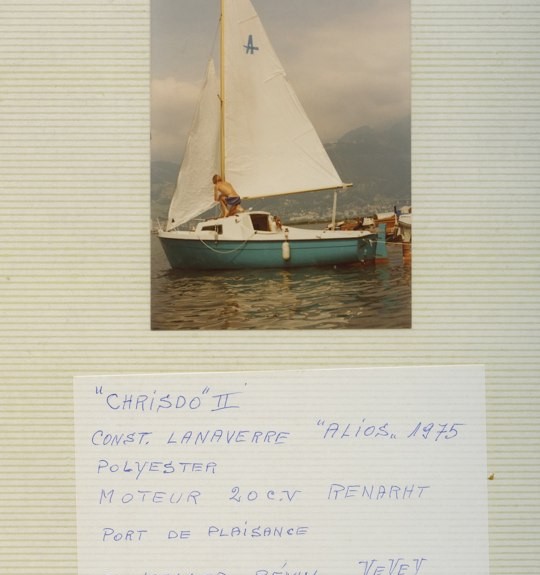 A
"CHRISDO" II
CONST. LANAVERRE "ALIOS" 1975
POLYESTER
MOTEUR 20 C.V RENARHT
PORT DE PLAISANCE
VEVEY